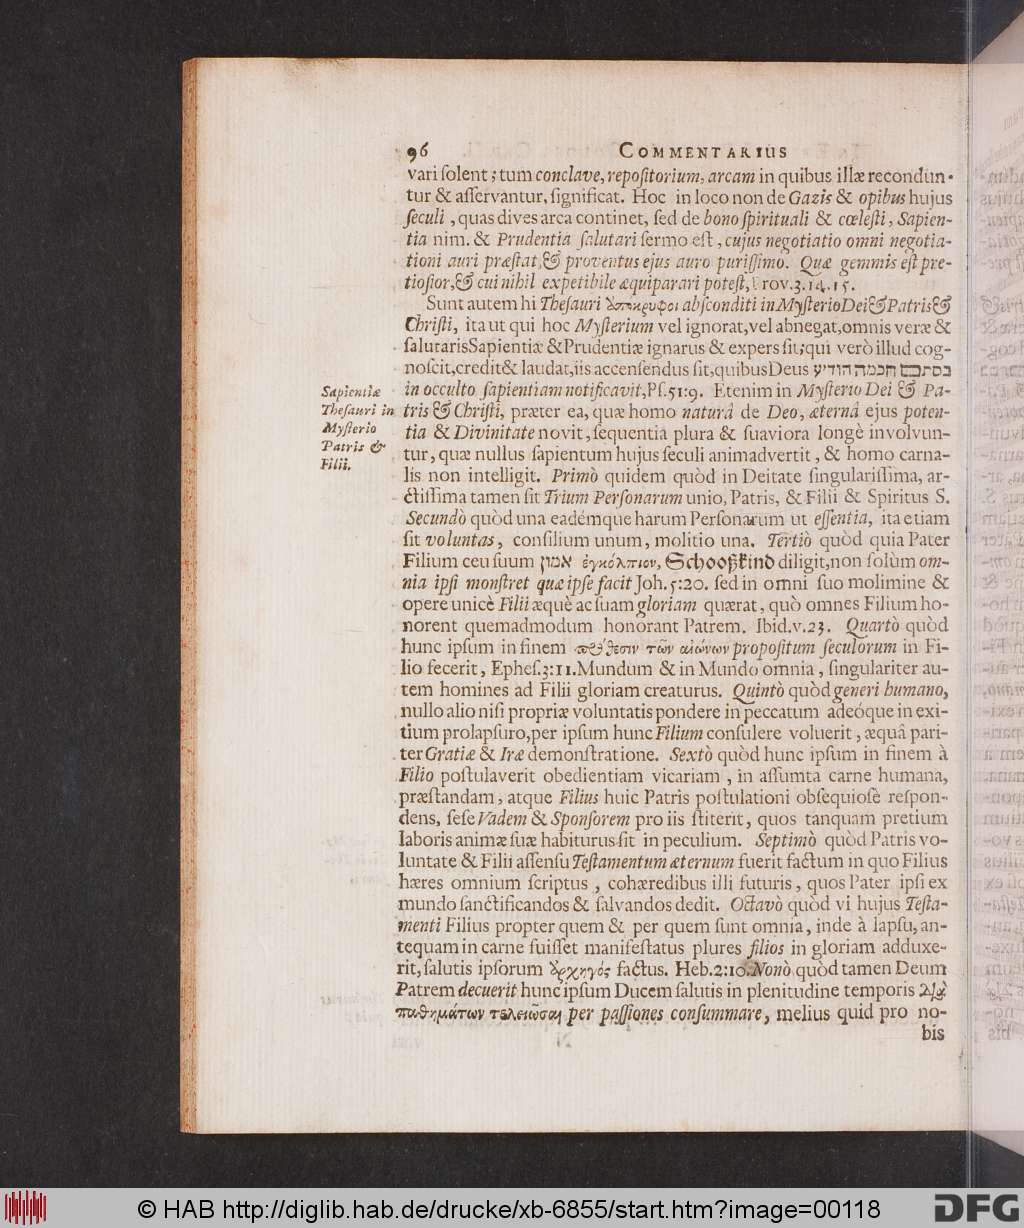 96 COMMENTARIUS
vari ſolent; tum conclave, repoſitorium, arcam in quibus illæ recondun-
tur & aſſervantur, ſignificat. Hoc in loco non de Gazis & opibus hujus
ſeculi, quas dives arca continet, ſed de bono ſpirituali & cœleſti, Sapien-
tia nim. & Prudentia ſalutari ſermo eſt, cujus negotiatio omni negotia-
tioni auri præſtat, & proventus ejus auro puriſſimo. Quæ gemmis eſt pre-
tioſior, & cui nihil expetibile æquiparari poteſt, Prov. 3. 14. 15.
Sunt autem hi Theſauri ἀπόκρυφοι abſconditi in Myſterio Dei & Patris &
Chriſti, ita ut qui hoc Myſterium vel ignorat, vel abnegat, omnis veræ &
ſalutaris Sapientiæ & Prudentiæ ignarus & expers ſit; qui verò illud cog-
noſcit, credit & laudat, iis accenſendus ſit, quibus Deus בסתם חכמה הודיע
in occulto ſapientiam notificavit, Pſ. 51:9. Etenim in Myſterio Dei & Pa-
tris & Chriſti, præter ea, quæ homo naturâ de Deo, æternâ ejus poten-
tia & Divinitate novit, ſequentia plura & ſuaviora longè involvun-
tur, quæ nullus ſapientum hujus ſeculi animadvertit, & homo carna-
lis non intelligit. Primò quidem quòd in Deitate ſingulariſſima, ar-
ctiſſima tamen ſit Trium Perſonarum unio, Patris, & Filii & Spiritus S.
Secundò quòd una eadémque harum Perſonarum ut eſſentia, ita etiam
ſit voluntas, conſilium unum, molitio una. Tertiò quòd quia Pater
Filium ceu ſuum אמון ἐγκόλπιον, Schooßkind diligit, non ſolùm om-
nia ipſi monſtret quæ ipſe facit Joh. 5:20. ſed in omni ſuo molimine &
opere unicè Filii æquè ac ſuam gloriam quærat, quò omnes Filium ho-
norent quemadmodum honorant Patrem. Ibid. v. 23. Quartò quòd
hunc ipſum in finem πρόθεσιν τῶν αἰώνων propoſitum ſeculorum in Fi-
lio fecerit, Epheſ. 3:11. Mundum & in Mundo omnia, ſingulariter au-
tem homines ad Filii gloriam creaturus. Quintò quòd generi humano,
nullo alio niſi propriæ voluntatis pondere in peccatum adeóque in exi-
tium prolapſuro, per ipſum hunc Filium conſulere voluerit, æquâ pari-
ter Gratiæ & Iræ demonſtratione. Sextò quòd hunc ipſum in finem à
Filio poſtulaverit obedientiam vicariam, in aſſumta carne humana,
præſtandam, atque Filius huic Patris poſtulationi obſequioſè reſpon-
dens, ſeſe Vadem & Sponſorem pro iis ſtiterit, quos tanquam pretium
laboris animæ ſuæ habiturus ſit in peculium. Septimò quòd Patris vo-
luntate & Filii aſſenſu Teſtamentum æternum fuerit factum in quo Filius
hæres omnium ſcriptus, cohæredibus illi futuris, quos Pater ipſi ex
mundo ſanctificandos & ſalvandos dedit. Octavò quòd vi hujus Teſta-
menti Filius propter quem & per quem ſunt omnia, inde à lapſu, an-
tequam in carne fuiſſet manifeſtatus plures filios in gloriam adduxe-
rit, ſalutis ipſorum ἀρχηγός factus. Heb. 2:10. Nonò quòd tamen Deum
Patrem decuerit hunc ipſum Ducem ſalutis in plenitudine temporis διὰ
παθημάτων τελειῶσαι per paſſiones conſummare, melius quid pro no-
bis
Sapientiæ
Theſauri in
Myſterio
Patris &
Filii.
© HAB http://diglib.hab.de/drucke/xb-6855/start.htm?image=00118
DFG